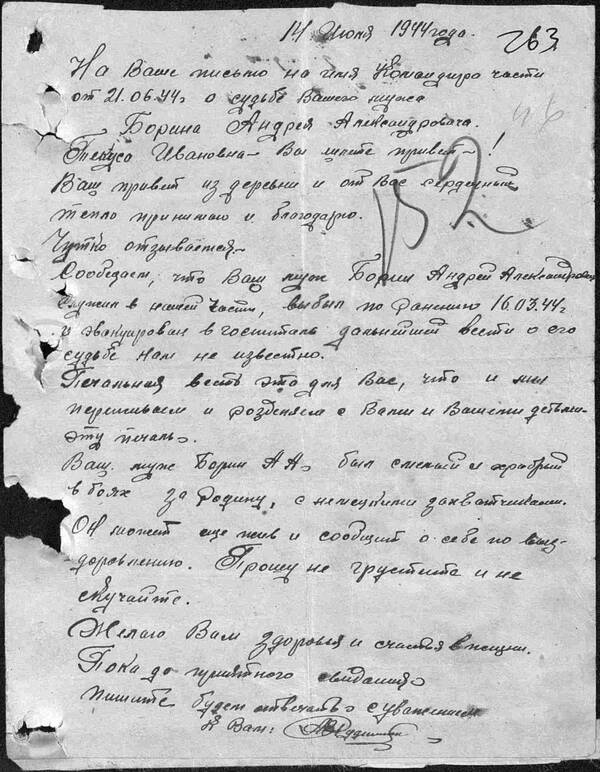 14 Июля 1944 года.
263
На Ваше письмо на имя Командира части
от 21.06.44г о судьбе Вашего мужа
Борина Андрея Александровича.
Ивановна – Вы шлете привет – !
Ваш привет из деревни и от Вас сердечный
тепло принимаю и благодарю.
152
Чутко отзываемся.
Сообщаем, что Ваш муж Борин Андрей Александрович
служил в нашей части, выбыл по ранению 16.03.44г
и эвакуирован в госпиталь дальнейшей вести о его
судьбе нам не известно.
Печальная весть это для Вас, что и мы
переживаем и разделяем с Вами и Вашими детьми
эту печаль.
Ваш муж Борин А.А. был смелый и храбрый
в боях за Родину, с немецкими захватчиками.
Он может еще жив и сообщит о себе по выз-
доровлению. Прошу не грустите и не
скучайте.
Желаю Вам здоровья и счастья в жизни.
Пока до приятного свидания
пишите будем отвечать с уважением
к Вам: